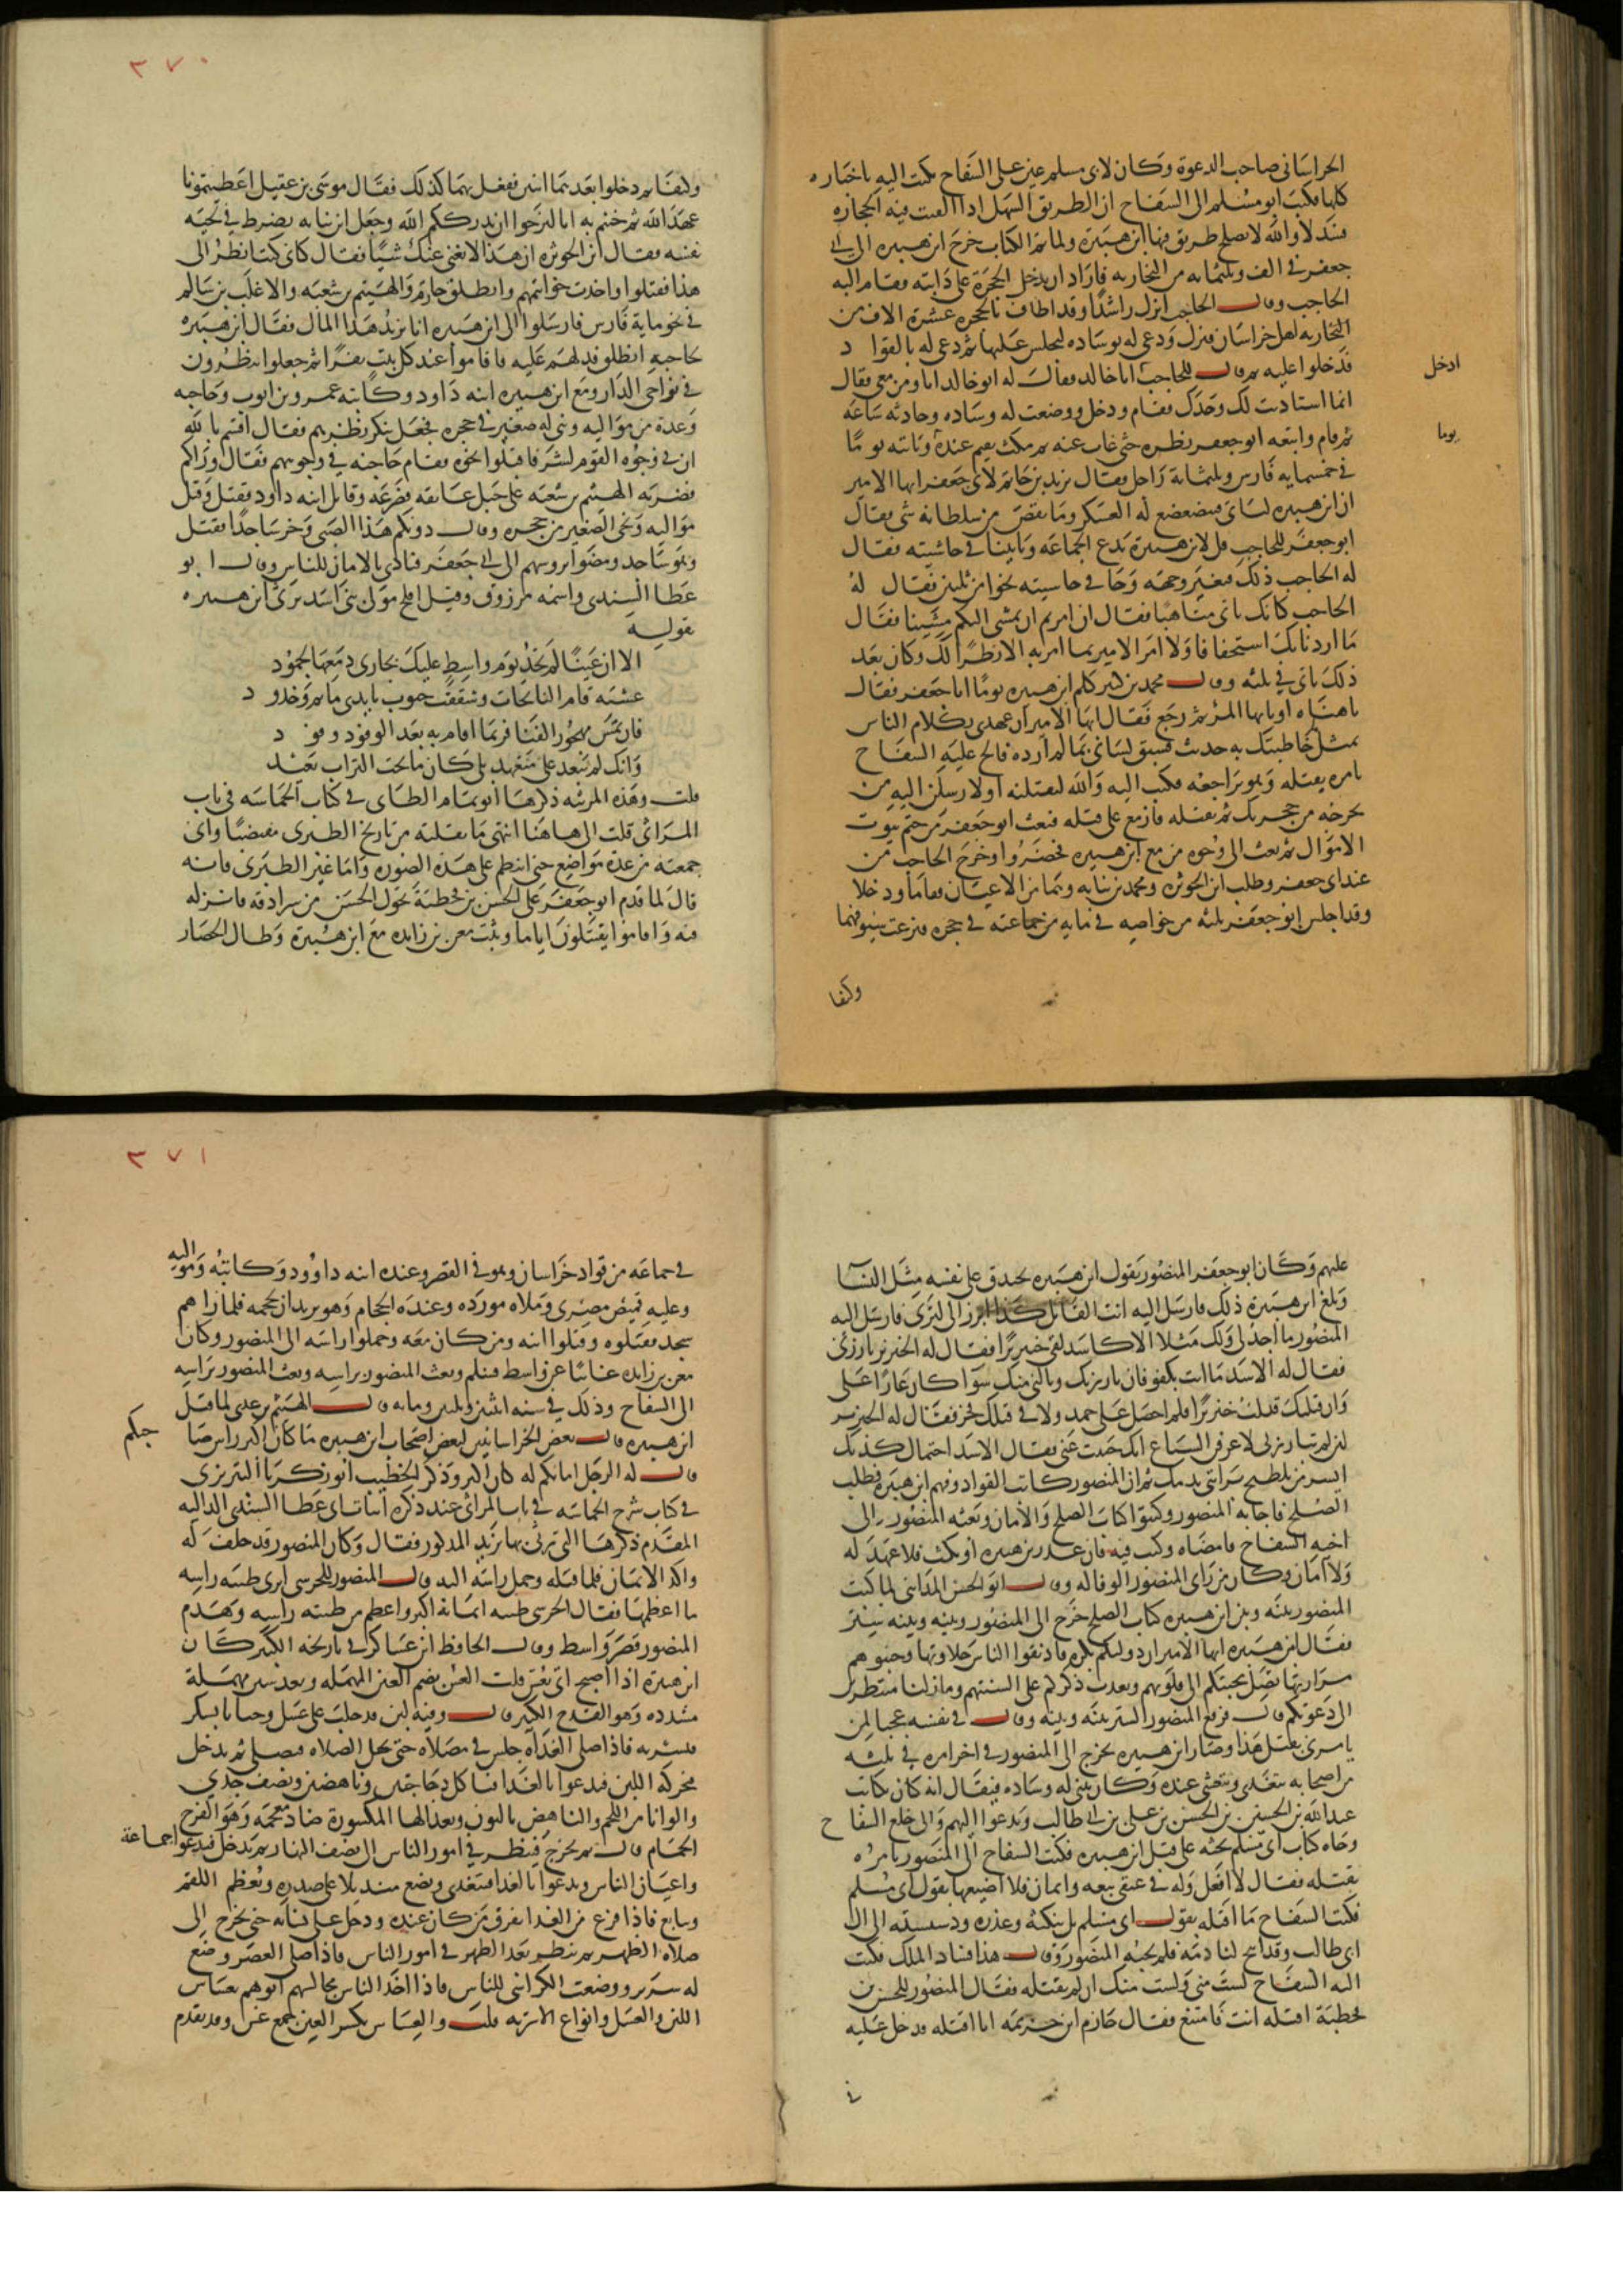 الخراساني صاحب الدعوة وكان لابى مسلم عين على السفاح يكتب اليه باخباره
كلها فكتب ابو مسلم الى السفاح ان الطريق السهل اذا القيت فيه الحجارة
فسد لا والله لا يصلح طريق فيها ابن هبيرة ولما تم الكتاب خرج ابن هبيره الى ابى
جعفر في الف وثلثمايه من البخاريه فاراد ان يدخل الحجرة على دابته فقام اليه
الحاجب وقال الحاجب انزل راشدا وقد اطاف بالحجره عشرة الاف من
البخاريه اهل خراسان فنزل ودعى له بوساده ليجلس عليها ثم دعى له بالقوا د
ادخل
فدخلوا عليه ثم قال للحاجب ابا خالد فقالت له ابو خالد انا ومن معى فقال
انما استاذنت لك وحدك فقام ودخل ووضعت له وساده وحادثه ساعه
يوما
ثم قام واتبعه ابو جعفر نظره حتى غاب عنه ثم مكث يقيم عنده وياتيه يوما
في خمسمايه فارس وثلثمائة راجل فقال يزيد بن حاتم لابى جعفر ايها الامير
ان ابن هبيره لياتى فيتضعضع له العسكر وما نقص من سلطانه شى فقال
ابو جعفر للحاجب قل لابن هبيرة يدع الجماعه وياتينا في حاشيته فقال
له الحاجب ذلك فتغير وجهه وجا في حاشيته نحوا من ثلثين فقال له
الحاجب كانك تاتى متاهبا فقال ان امرتم ان نمشى اليكم مشينا فقال
ما اردنا بك استخفافا ولا امر الامير بما امر به الا نظرا لك وكان بعد
ذلك ياتى في ثلثه وقال محمد بن كثير كلم ابن هبيره يوما ابا جعفر فقال
يا هناه او يا ايها المرء ثم رجع فقال ايها الامير ان عهدى بكلام الناس
بمثل ما خاطبتك به حديث فسبق لسانى بما لم ارده فالح عليه السفاح
يامره بقتله وهو يراجعه فكتب اليه والله لتقتلنه او لارسلن اليه من
يخرجه من حجرتك ثم يقتله فازمع على قتله فبعث ابو جعفر من ختم بيوت
الاموال ثم بعث الى وجوه من مع ابن هبيره فحضروا وخرج الحاجب من
عند ابى جعفر وطلب ابن الحوثره ومحمد بن نباته وهما من الاعيان فقاما ودخلا
وقد اجلس ابو جعفر ثلثه من خواصه في مايه من جماعته في حجره فنزعت سيوفهما
وكتفا
٣٧٠
وكتفا ثم دخلوا بعدهما اثنين ففعل بهما كذلك فقال موسى بن عقيل اعطيتمونا
عهد الله ثم خنتم به انا لنرجوا ان يدرككم الله وجعل ابن نباته يضرط في لحيته
نفسه فقال ابن الحوثره ان هذا لا يغنى عنك شيا فقال كانى كنت انظر الى
هذا فقتلوا واخذت خواتيمهم وانطلق خازم والهيثم بن شعبه والاغلب بن سالم
في نحو ماية فارس فارسلوا الى ابن هبيره انا نريد هذا المال فقال ابن هبيره
لحاجبه انطلق فدلهم عليه فاقاموا عند كل بيت نفرا ثم جعلوا ينظرون
في نواحى الدار ومع ابن هبيره ابنه داود وكاتبه عمرو بن ايوب وحاجبه
وعدة من مواليه وبنى له صغير في حجره فجعل ينكر نظرهم فقال اقسم بالله
ان في وجوه القوم لشر فاقبلوا نحوه فقام حاجبه في وجوههم فقال وراكم
فضربه الهيثم بن شعبه على حبل عاتقه فصرعه وقاتل ابنه داود فقتل وقتل
مواليه ونحى الصغير من حجره وقال دونكم هذا الصبى وخر ساجدا فقتل
وهو ساجد ومضوا بروسهم الى ابى جعفر فنادى بالامان للناس وقال ابو
عطا السندى واسمه مرزوق وقيل افلح مولى بنى اسد يرثى ابن هبيره
بقوله
الا ان عينا لم تجد يوم واسط عليك بجارى دمعها لجمود
عشيه قام النائحات وشققت جيوب بايدى ماتم وخدود
فان تمس مهجور الفنا فربما اقام به بعد الوفود وفود
وانك لم تبعد على متعهد بلى كان ما تحت التراب بعيد
قلت وهذه المرثيه ذكرها ابو تمام الطاى في كتاب الحماسه في باب
المراثى قلت الى هاهنا انتهى ما نقلته من تاريخ الطبرى مقتضبا وانى
جمعته من عدة مواضع حتى انتظم على هذه الصوره واما غير الطبرى فانه
قال لما قدم ابو جعفر على الحسن بن قحطبة تحول الحسن من سرادقه فانزله
فيه واقاموا يقتتلون اياما وثبت معن بن زايده مع ابن هبيرة وطال الحصار
عليهم وكان ابو جعفر المنصور يقول ابن هبيره يخندق على نفسه مثل النسا
وبلغ ابن هبيرة ذلك فارسل اليه انت القائل كذا ابرز الى لترى فارسل اليه
المنصور ما اجد لى ولك مثلا الا كاسد لقى خنزيرا فقال له الخنزير بارزنى
فقال له الاسد ما انت بكفو فان بارزتك ونالنى منك سوا كان عارا على
وان قتلتك قتلت خنزيرا فلم احصل على حمد ولا في قتلك فخر فقال له الخنزير
لئن لم تبارزنى لاعرفن السباع انك جبنت عنى فقال الاسد احتمال كذبك
ايسر من تلطيخ براثنى بدمك ثم ان المنصور كاتب القواد وفهم ابن هبيره فطلب
الصلح فاجابه المنصور وكتبوا كتاب الصلح والامان وبعثه المنصور الى
اخيه السفاح فامضاه وكتب فيه فان غدر ابن هبيره او نكث فلا عهد له
ولا امان وكان من راى المنصور الوفا له وقال ابو الحسن المداينى لما كتب
المنصور بينه وبين ابن هبيره كتاب الصلح خرج الى المنصور وبينه وبينه ستر
فقال ابن هبيره ايها الامير ان دولتكم بكر فاذيقوا الناس حلاوتها وجنبوهم
مرارتها تصل محبتكم الى قلوبهم ويعذب ذكركم على السنتهم وما زلنا منتظرين
الى دعوتكم قال فرفع المنصور الستر بينه وبينه وقال في نفسه عجبا لمن
يامرنى بقتل هذا وصار ابن هبيره يخرج الى المنصور في اخر امره في ثلثه
من اصحابه يتغدى ويتعشى عنده وكان يثنى له وساده فيقال انه كان يكاتب
عبد الله بن الحسن بن الحسن بن على بن ابى طالب ويدعوا اليهم والى خلع السفاح
وجاه كتاب ابى مسلم يحثه على قتل ابن هبيره فكتب السفاح الى المنصور يامره
بقتله فقال لا افعل وله في عنقى بيعه وايمان فلا اضيعها بقول ابى مسلم
فكتب السفاح ما اقتله بقول ابى مسلم بل بنكثه وغدره ودسيسته الى ال
ابى طالب وقد ابيح لنا دمه فلم يجبه المنصور وقال هذا فساد الملك فكتب
اليه السفاح لست منى ولست منك ان لم تقتله فقال المنصور للحسن بن
قحطبة اقتله انت فامتنع فقال خازم ابن خزيمه انا اقتله فدخل عليه
في
٣٧١
في جماعه من قواد خراسان وهو في القصر وعنده ابنه داوود وكاتبه ومواليه
وعليه قميص مصرى وملاه مورده وعنده الحجام وهو يريد ان يحجمه فلما راهم
سجد فقتلوه وقتلوا ابنه ومن كان معه وحملوا راسه الى المنصور وكان
معن بن زايده غائبا عن واسط فسلم وبعث المنصور براسه وبعث المنصور براسه
الى السفاح وذلك في سنه اثنتين وثلثين ومايه قال الهيثم بن عدى لما قتل
ابن هبيره قال بعض الخراسانيين لبعض اصحاب ابن هبيره ما كان اكبر راس صا
حبكم
قال له الرجل امانكم له كان اكبر وذكر الخطيب ابو زكريا التبريزى
في كتاب شرح الحماسه في باب المراثى عند ذكره ابيات ابى عطا السندى الداليه
المقدم ذكرها التى يرثى بها يزيد المذكور فقال وكان المنصور قد حلف له
واكد الايمان فلما قتله وحمل راسه اليه قال المنصور للحرسى اترى طينه راسه
ما اعظمها فقال الحرسى طينه ايمانه اكبر واعظم من طينه راسه وهدم
المنصور قصر واسط وقال الحافظ ابن عساكر في تاريخه الكبير كان
ابن هبيرة اذا اصبح اتى بعس قلت العس بضم العين المهمله وبعد سين مهملة
مشدده وهو القدح الكبير قال وفيه لبن قد حلب على عسل واحيانا بسكر
فيشربه فاذا صلى الغداه جلس في مصلاه حتى تحل الصلاه فيصلى ثم يدخل
فيحركه اللبن فيدعوا بالغدا فياكل دجاجتين وناهضين ونصف جدى
والوانا من اللحم والناهض بالنون وبعد الها المكسورة ضاد معجمه وهو الفرخ
الحمام قال ثم يخرج فينظر في امور الناس الى نصف النهار ثم يدخل فيدعوا جماعة
واعيان الناس ويدعوا بالغدا فيتغدى ويضع منديلا على صدره ويعظم اللقم
ويتابع فاذا فرغ من الغدا تفرق من كان عنده ودخل على نسائه حتى يخرج الى
صلاه الظهر ثم ينظر بعد الظهر في امور الناس فاذا صلى العصر وضع
له سرير ووضعت الكراسى للناس فاذا اخذ الناس مجالسهم اتوهم بعساس
اللبن والعسل وانواع الاشربه قلت والعساس بكسر العين جمع عس وقد تقدم